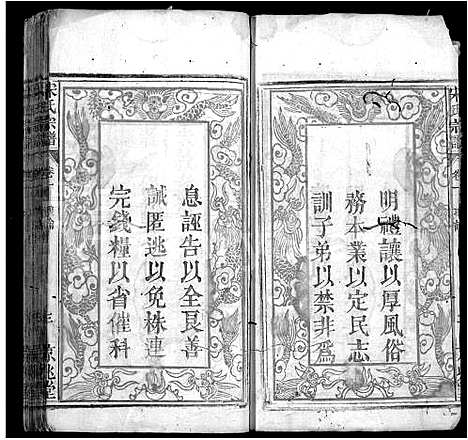 明禮讓以厚風俗
務本業以定民志
訓子弟以禁非為
息誣告以全良善
誡匿逃以免株連
完錢糧以省催科
宋氏宗譜
卷一